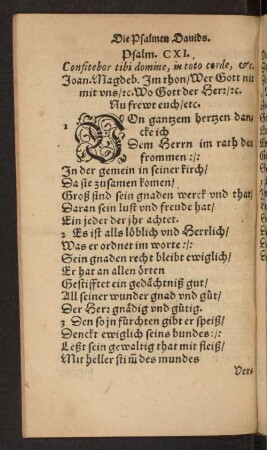 Die Psalmen Dauids.
Psalm. CXI.
Confitebor tibi domine, in toto corde, &c.
Joan. Magdeb. Im thon/Wer Gott nit
mit vns/ꝛc. Wo Gott der Herꝛ/ꝛc.
Nu frewt euch/etc.
1 VOn gantzem hertzen dan-
cke ich
Dem Herrn im rath der
frommen :/:
In der gemein in seiner kirch/
Da sie zusamen komen/
Groß sind sein gnaden werck vnd that/
Daran sein lust vnd freude hat/
Ein jeder der jhr achtet.
2 Es ist alls löblich vnd Herrlich/
Was er ordnet im worte :/:
Sein gnaden recht bleibt ewiglich/
Er hat an allen örten
Gestifftet ein gedächtniß gut/
All seiner wunder gnad vnd güt/
Der Herꝛ gnädig vnd gütig.
3 Den so jn fürchten gibt er speiß/
Denckt ewiglich seins bundes :/:
Leßt sein gewaltig that mit fleiß/
Mit heller stim̃ des mundes
Ver-